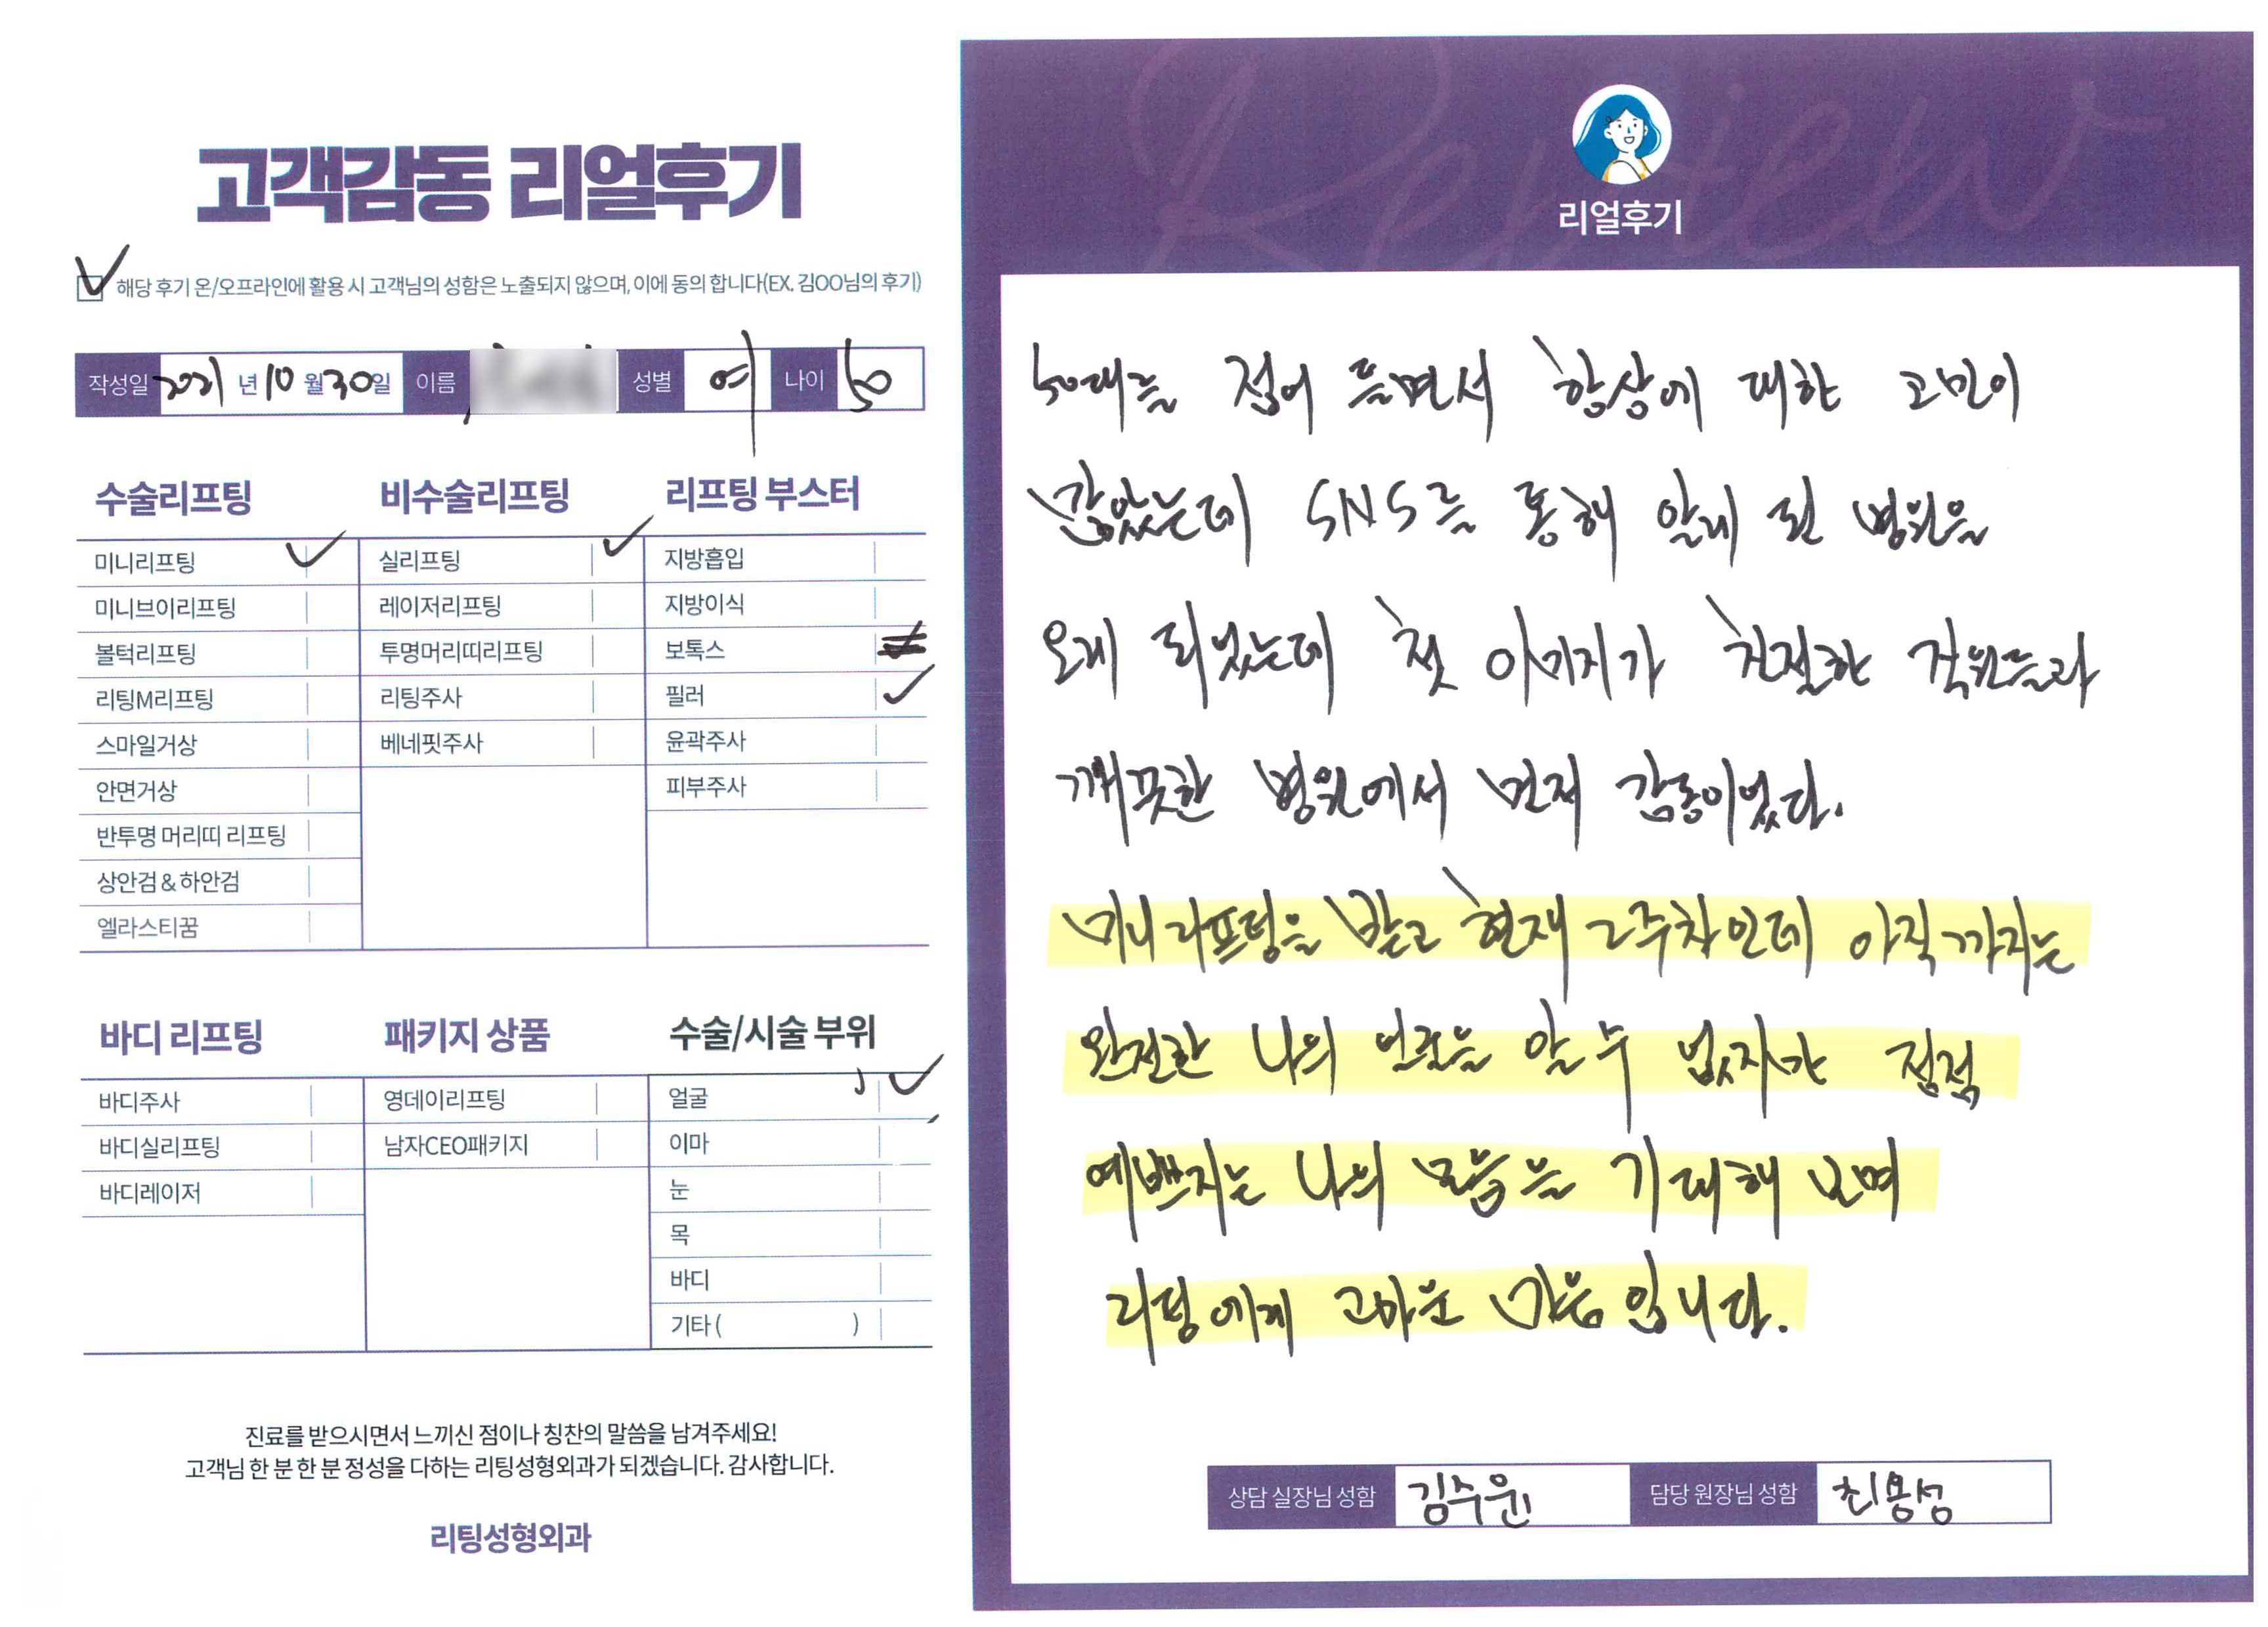 고객감동 리얼후기
해당 후기 온/오프라인에 활용 시 고객님의 성함은 노출되지 않으며, 이에 동의 합니다(EX. 김OO님의 후기)
작성일 2021 년 10 월 30일 이름 성별 여 나이 50
수술리프팅
미니리프팅
미니브이리프팅
볼턱리프팅
리팅M리프팅
스마일거상
안면거상
반투명 머리띠 리프팅
상안검 & 하안검
엘라스티꿈
비수술리프팅
실리프팅
레이저리프팅
투명머리띠리프팅
리팅주사
베네핏주사
리프팅 부스터
지방흡입
지방이식
보톡스
필러
윤곽주사
피부주사
바디 리프팅
바디주사
바디실리프팅
바디레이저
패키지 상품
영데이리프팅
남자CEO패키지
수술/시술 부위
얼굴
이마
눈
목
바디
기타 ( )
진료를 받으시면서 느끼신 점이나 칭찬의 말씀을 남겨주세요!
고객님 한 분 한 분 정성을 다하는 리팅성형외과가 되겠습니다. 감사합니다.
리팅성형외과
Review
리얼후기
50대를 접어 들면서 항상에 대한 고민이
많았는데 SNS를 통해 알게 된 병원을
오게 되었는데 첫 이미지가 친절한 직원들과
깨끗한 병원에서 먼저 감동이었다.
미니리프팅을 받고 현재 2주차인데 아직까지는
완전한 나의 얼굴을 알 수 없지만 점점
예뻐지는 나의 모습을 기대해 보며
리팅에게 고마운 마음입니다.
상담 실장님 성함 김수윤 담당 원장님 성함 최봉성